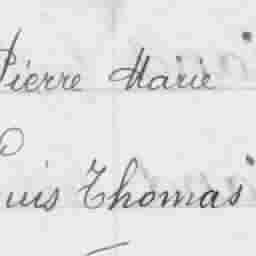 Pierre Marie
Louis Thomas